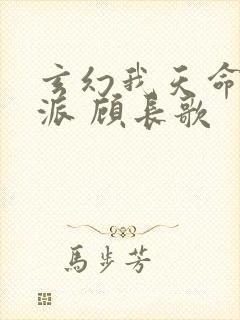 玄幻我天命
派 顾长歌
馬步芳